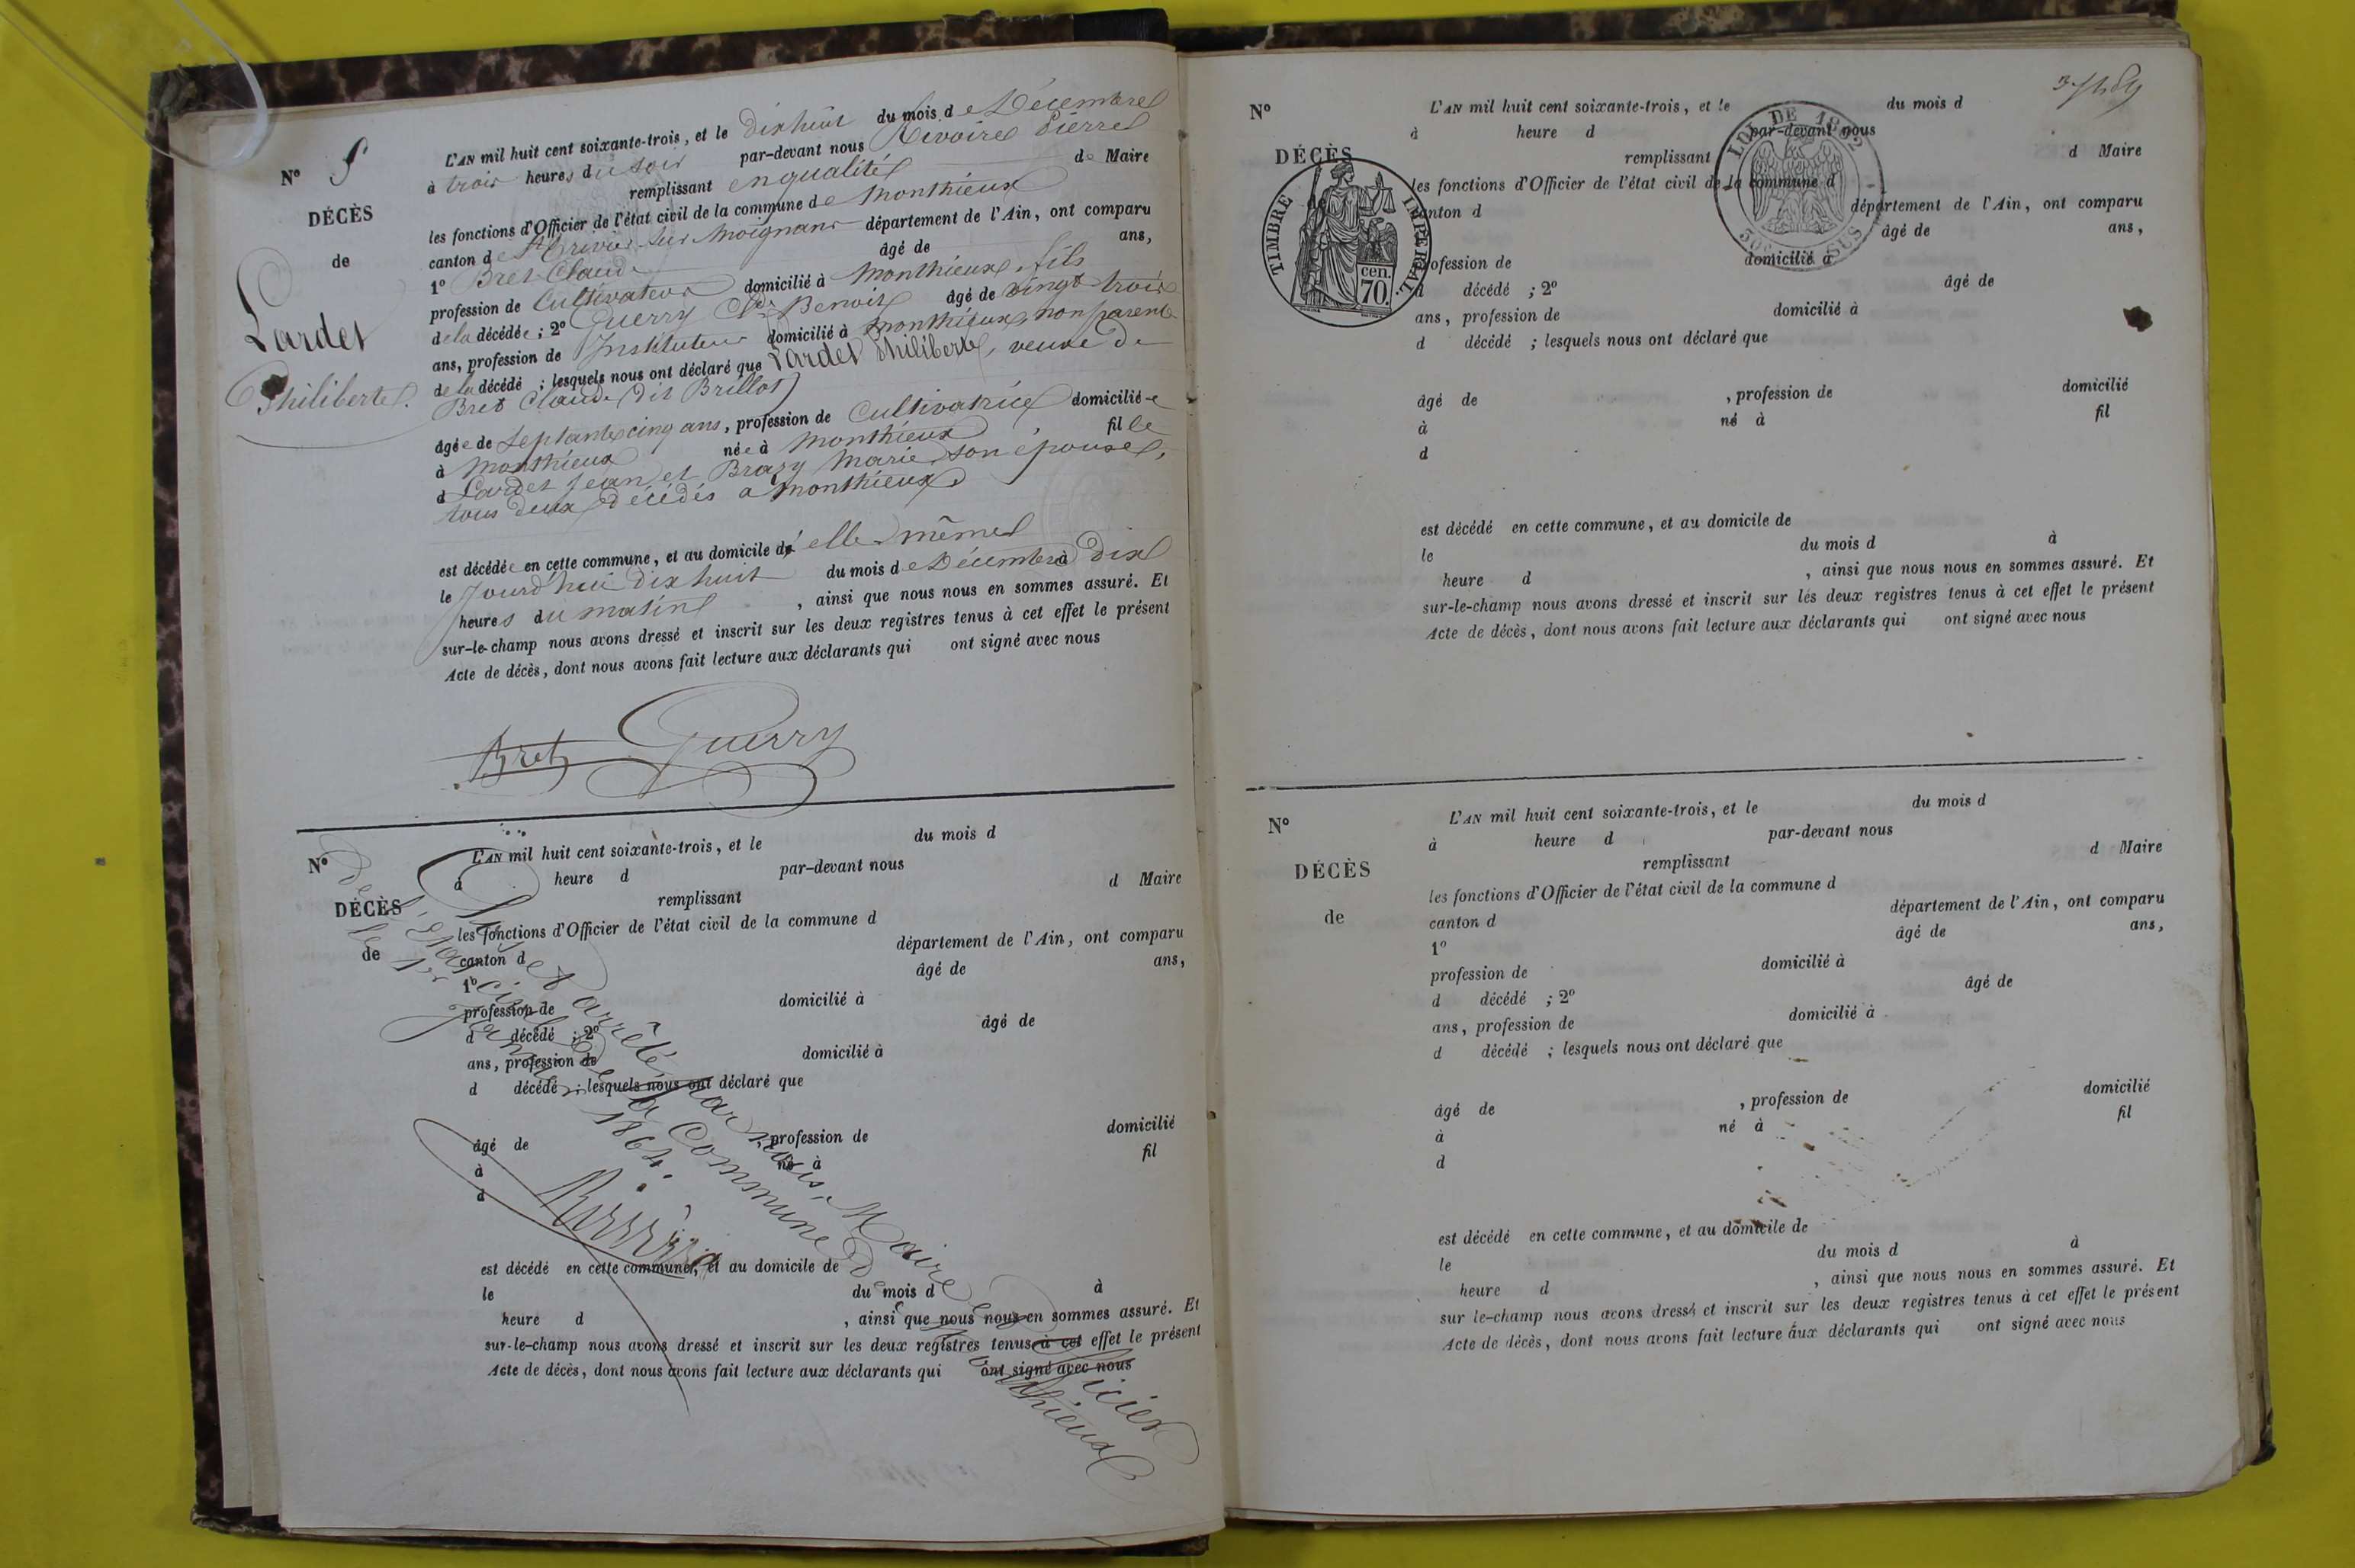 N°
DÉCÈS
de
Lardet
Philiberte.
L'AN mil huit cent soixante-trois, et le dix huit du mois de Décembre
à trois heures du soir par-devant nous Rivoire Pierre
remplissant en qualité de Maire
les fonctions d'Officier de l'état civil de la commune de Monthieux
canton de St Trivier sur Moignans département de l'Ain, ont comparu
1° Bret Claude âgé de ans,
profession de Cultivateur domicilié à Monthieux, fils
de la décédée; 2° Guerry Cde Benoit âgé de vingt trois
ans, profession de Instituteur domicilié à Monthieux, non parent
de la décédé ; lesquels nous ont déclaré que Lardet Philiberte, veuve de
Bret Claude (dit Brillot)
âgée de septante cinq ans, profession de Cultivatrice domiciliée
à Monthieux née à Monthieux fille
d Lardet Jean et Brazy Marie, son épouse,
tous deux décédés a Monthieux,
est décédée en cette commune, et au domicile d'elle même
le jourd'hui dix huit du mois de Décembre à dix
heures du matin , ainsi que nous nous en sommes assuré. Et
sur-le-champ nous avons dressé et inscrit sur les deux registres tenus à cet effet le présent
Acte de décès, dont nous avons fait lecture aux déclarants qui ont signé avec nous
Bret Guerry
N°
DÉCÈS
de
L'AN mil huit cent soixante-trois, et le du mois d
à heure d par-devant nous
remplissant d Maire
les fonctions d'Officier de l'état civil de la commune d
canton d département de l'Ain, ont comparu
1° âgé de ans,
profession de domicilié à
d décédé ; 2° âgé de
ans, profession de domicilié à
d décédé ; lesquels nous ont déclaré que
âgé de , profession de domicilié
à né à fil
d
est décédé en cette commune, et au domicile de
le du mois d à
heure d , ainsi que nous nous en sommes assuré. Et
sur-le-champ nous avons dressé et inscrit sur les deux registres tenus à cet effet le présent
Acte de décès, dont nous avons fait lecture aux déclarants qui ont signé avec nous
Clos et arrêté par nous, Maire et Officier
de l'Etat civil de la Commune de Monthieux
le 1er Janvier 1864.
Rivoire
N°
DÉCÈS
de
TIMBRE IMPÉRIAL
70 cen.
LOI DE 1862
L'AN mil huit cent soixante-trois, et le du mois d
à heure d par-devant nous
remplissant d Maire
les fonctions d'Officier de l'état civil de la commune d
canton d département de l'Ain, ont comparu
âgé de ans,
profession de domicilié à
d décédé ; 2° âgé de
ans, profession de domicilié à
d décédé ; lesquels nous ont déclaré que
âgé de , profession de domicilié
à né à fil
d
est décédé en cette commune, et au domicile de
le du mois d à
heure d , ainsi que nous nous en sommes assuré. Et
sur-le-champ nous avons dressé et inscrit sur les deux registres tenus à cet effet le présent
Acte de décès, dont nous avons fait lecture aux déclarants qui ont signé avec nous
N°
DÉCÈS
de
L'AN mil huit cent soixante-trois, et le du mois d
à heure d par-devant nous
remplissant d Maire
les fonctions d'Officier de l'état civil de la commune d
canton d département de l'Ain, ont comparu
1° âgé de ans,
profession de domicilié à
d décédé ; 2° âgé de
ans, profession de domicilié à
d décédé ; lesquels nous ont déclaré que
âgé de , profession de domicilié
à né à fil
d
est décédé en cette commune, et au domicile de
le du mois d à
heure d , ainsi que nous nous en sommes assuré. Et
sur le-champ nous avons dressé et inscrit sur les deux registres tenus à cet effet le présent
Acte de décès, dont nous avons fait lecture aux déclarants qui ont signé avec nous